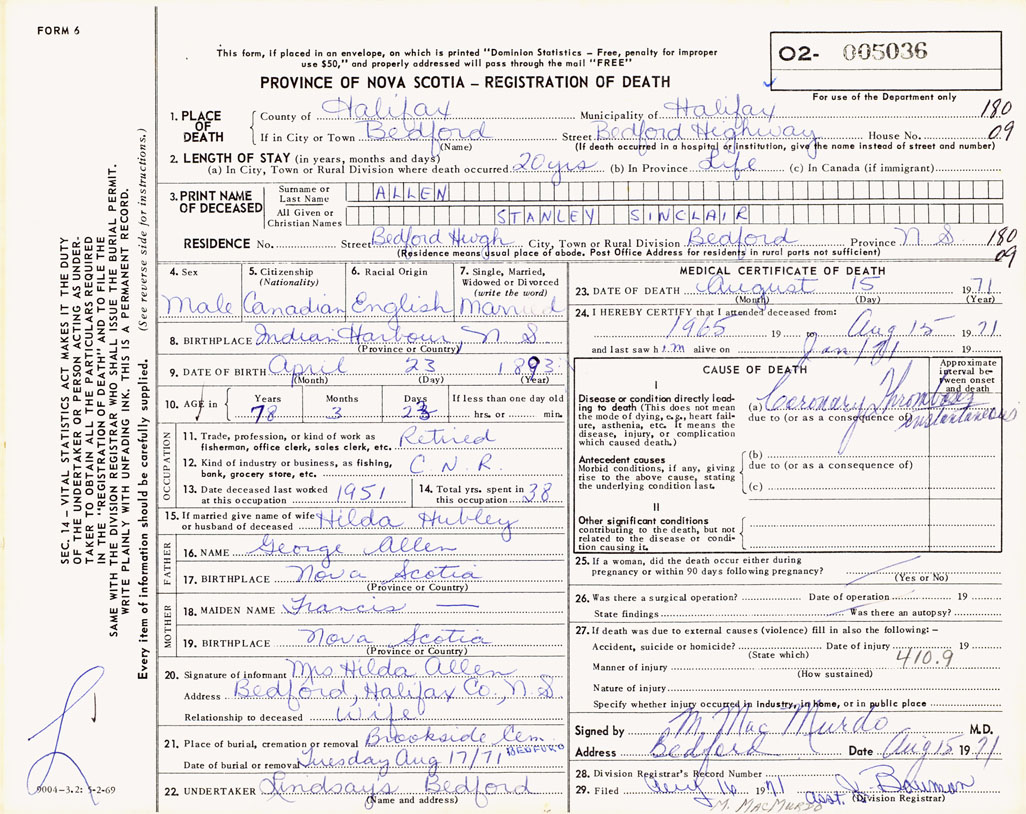 FORM 6
This form, if placed in an envelope, on which is printed "Dominion Statistics – Free, penalty for improper
use $50," and properly addressed will pass through the mail "FREE"
02- 005036
PROVINCE OF NOVA SCOTIA – REGISTRATION OF DEATH
For use of the Department only
1. PLACE OF DEATH { County of Halifax Municipality of Halifax 180
If in City or Town Bedford Street Bedford Highway House No. 09
(Name) (If death occurred in a hospital or institution, give the name instead of street and number)
2. LENGTH OF STAY (in years, months and days)
(a) In City, Town or Rural Division where death occurred 20 yrs (b) In Province Life (c) In Canada (if immigrant)
3. PRINT NAME OF DECEASED
Surname or Last Name ALLEN
All Given or Christian Names STANLEY SINCLAIR
RESIDENCE No. Street Bedford Hwgh City, Town or Rural Division Bedford Province N S 180
(Residence means usual place of abode. Post Office Address for residents in rural parts not sufficient) 09
4. Sex 5. Citizenship (Nationality) 6. Racial Origin 7. Single, Married, Widowed or Divorced (write the word)
Male Canadian English Married
8. BIRTHPLACE Indian Harbour, N S
(Province or Country)
9. DATE OF BIRTH April 23 1893
(Month) (Day) (Year)
10. AGE in Years Months Days If less than one day old
78 3 23 hrs. or min.
OCCUPATION
11. Trade, profession, or kind of work as fisherman, office clerk, sales clerk, etc. Retired
12. Kind of industry or business, as fishing, bank, grocery store, etc. C.N.R.
13. Date deceased last worked at this occupation 1951 14. Total yrs. spent in this occupation 38
15. If married give name of wife or husband of deceased Hilda Hubley
FATHER
16. NAME George Allen
17. BIRTHPLACE Nova Scotia
(Province or Country)
MOTHER
18. MAIDEN NAME Francis —
19. BIRTHPLACE Nova Scotia
(Province or Country)
20. Signature of informant Mrs Hilda Allen
Address Bedford, Halifax Co, N S
Relationship to deceased Wife
21. Place of burial, cremation or removal Brookside Cem.
BEDFORD
Date of burial or removal Tuesday Aug 17/71
22. UNDERTAKER Lindsays Bedford
(Name and address)
MEDICAL CERTIFICATE OF DEATH
23. DATE OF DEATH August 15 1971
(Month) (Day) (Year)
24. I HEREBY CERTIFY that I attended deceased from:
1965 19 to Aug 15 1971
and last saw him alive on Jan 1/71 19
CAUSE OF DEATH
Approximate interval between onset and death
I
Disease or condition directly leading to death (This does not mean the mode of dying, e.g., heart failure, asthenia, etc. It means the disease, injury, or complication which caused death.)
(a) Coronary Thrombosis
due to (or as a consequence of) instantaneous
Antecedent causes
Morbid conditions, if any, giving rise to the above cause, stating the underlying condition last.
(b)
due to (or as a consequence of)
(c)
II
Other significant conditions
contributing to the death, but not related to the disease or condition causing it.
25. If a woman, did the death occur either during
pregnancy or within 90 days following pregnancy?
(Yes or No)
26. Was there a surgical operation? Date of operation 19
State findings Was there an autopsy?
27. If death was due to external causes (violence) fill in also the following: –
Accident, suicide or homicide? Date of injury 19
(State which) 410.9
Manner of injury
(How sustained)
Nature of injury
Specify whether injury occurred in industry, in home, or in public place
Signed by M. MacMurdo M.D.
Address Bedford Date Aug 15 1971
28. Division Registrar's Record Number
29. Filed Aug 16 1971 asst. J. Bauman
(Division Registrar)
M. MACMURDO
SEC. 14 – VITAL STATISTICS ACT MAKES IT THE DUTY
OF THE UNDERTAKER OR PERSON ACTING AS UNDER-
TAKER TO OBTAIN ALL THE PARTICULARS REQUIRED
IN THE "REGISTRATION OF DEATH" AND TO FILE THE
SAME WITH THE DIVISION REGISTRAR WHO SHALL ISSUE THE BURIAL PERMIT.
WRITE PLAINLY WITH UNFADING INK. THIS IS A PERMANENT RECORD.
Every item of information should be carefully supplied. (See reverse side for instructions.)
9004-3.2: 5-2-69